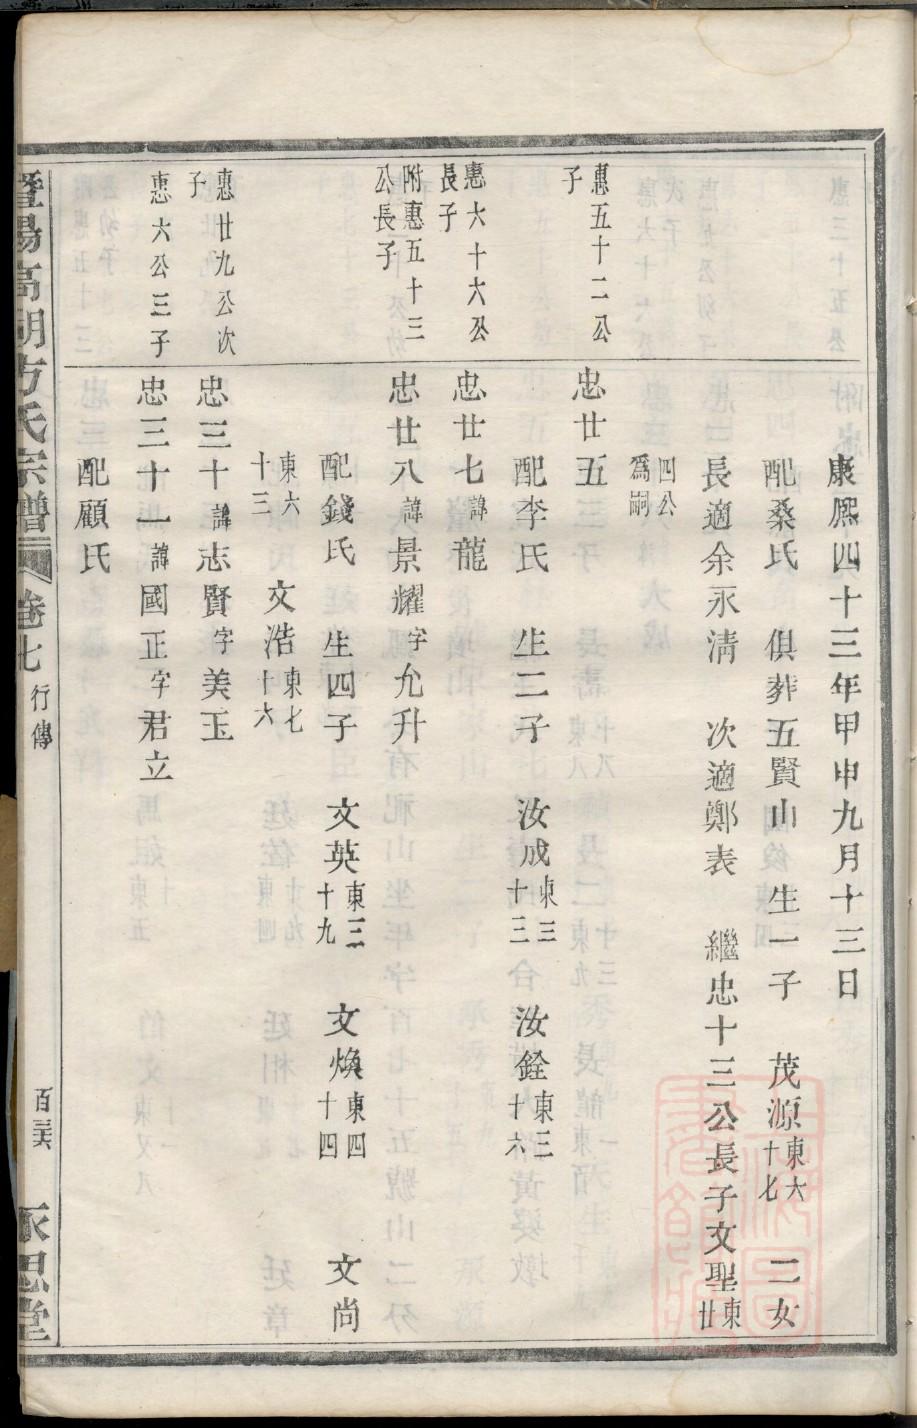 康熈四十三年甲申九月十三日
配桑氏 俱葬五賢山 生一子 茂源東六十七 二女
長適余永清 次適鄭表 繼忠十三公長子文聖東廿
四公爲嗣
惠五十二公子
忠廿五
配李氏 生二子 汝成東三十三 汝銓東三十六
惠六十六公長子
忠廿七諱龍
附惠五十三公長子
忠廿八諱景耀字允升
配錢氏 生四子 文英東三十九 文煥東四十四 文尚
東六十三 文浩東七十六
惠廿九公次子
忠三十諱志賢字美玉
惠六公三子
忠三十一諱國正字君立
配顧氏
暨陽高湖方氏宗譜 卷七 行傳 永思堂